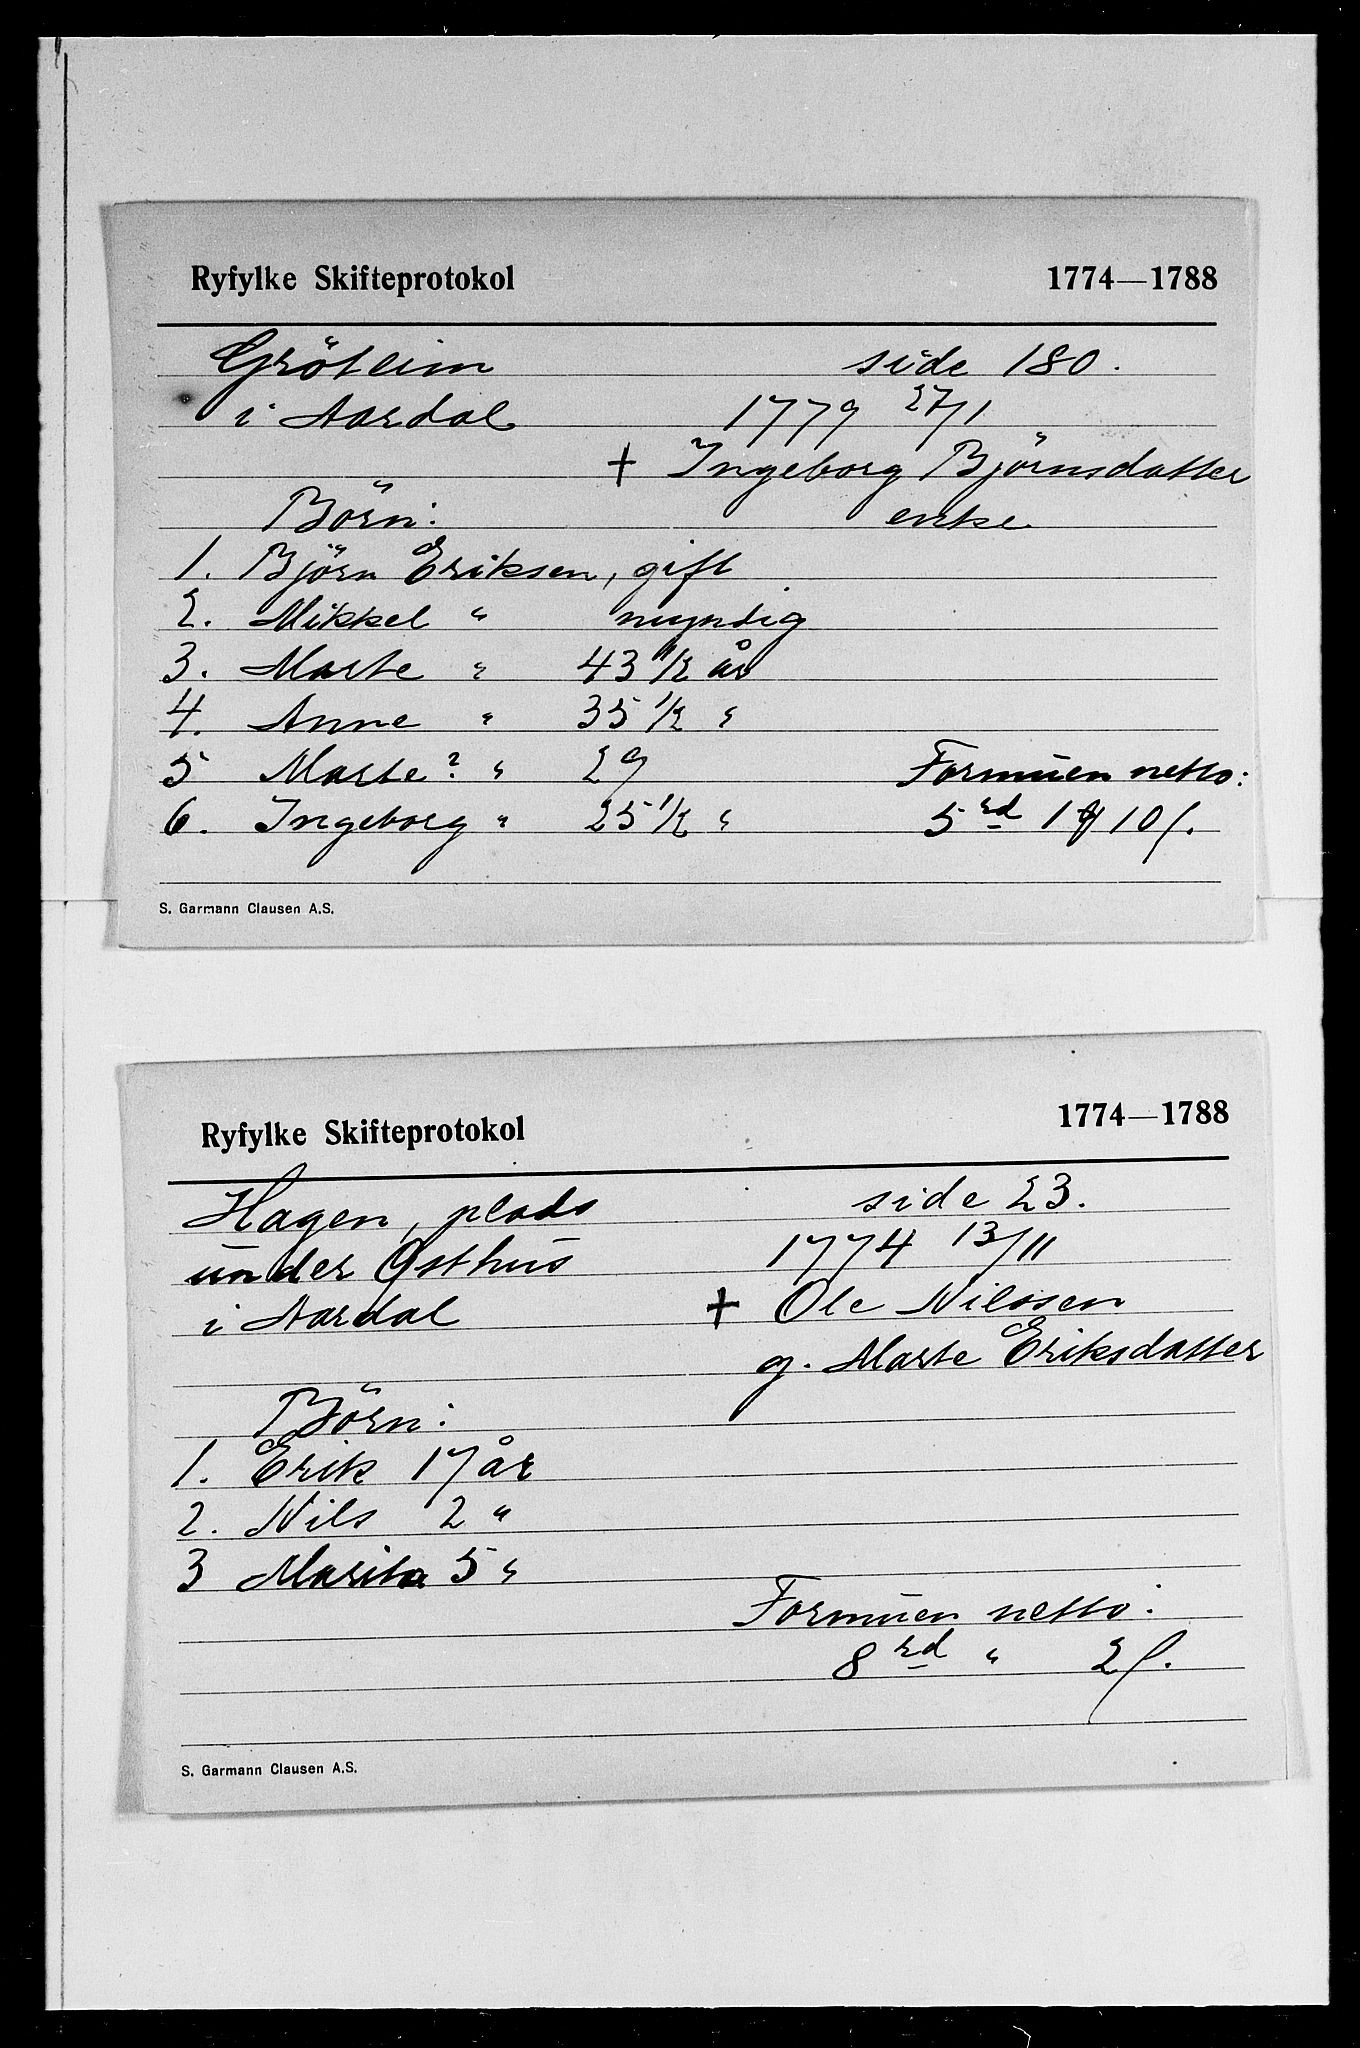 Ryfylke Skifteprotokol 1774—1788
Gröteim side 180.
i Aardal 1779 27/1
+ Ingeborg Björnsdatter
Börn: enke
1. Björn Eriksen, gift
2. Mikkel " myndig
3. Marte " 43 1/2 år
4. Anne " 35 1/2 "
5 Marte? " 29 Formuen netto:
6. Ingeborg " 25 1/2 " 5 rd 1 10 s.
S. Garmann Clausen A.S.
Ryfylke Skifteprotokol 1774—1788
Hagen, plads side 23.
under Østhus 1774 13/11
i Aardal + Ole Nilssen
g. Marte Eriksdatter
Börn:
1. Erik 17 år
2. Nils 2 "
3 Marita 5 "
Formuen netto:
8 rd " 2 s.
S. Garmann Clausen A.S.